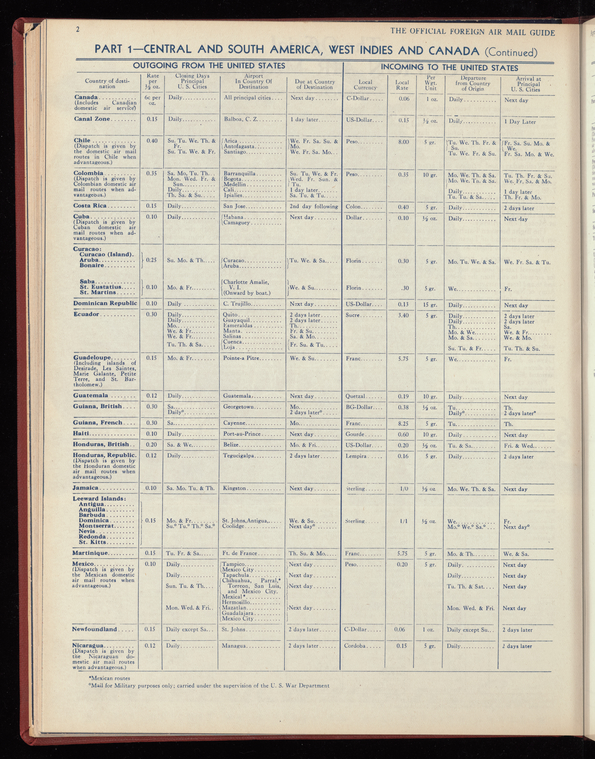 2
THE OFFICIAL FOREIGN AIR MAIL GUIDE
PART 1—CENTRAL AND SOUTH AMERICA, WEST INDIES AND CANADA (Continued)
OUTGOING FROM THE UNITED STATES
INCOMING TO THE UNITED STATES
Country of destination | Rate per ½ oz. | Closing Days Principal U. S. Cities | Airport In Country Of Destination | Due at Country of Destination | Local Currency | Local Rate | Per Wgt. Unit | Departure from Country of Origin | Arrival at Principal U. S. Cities
Canada 6c per oz. Daily All principal cities Next day C-Dollar 0.06 1 oz. Daily Next day
(Includes Canadian domestic air service)
Canal Zone 0.15 Daily Balboa, C. Z. 1 day later US-Dollar 0.15 ½ oz. Daily 1 Day Later
Chile 0.40 Su. Tu. We. Th. & Fr. Arica We. Fr. Sa. Su. & Mo. Peso 8.00 5 gr. Tu. We. Th. Fr. & Su. Fr. Sa. Su. Mo. & We.
(Dispatch is given by the domestic air mail routes in Chile when advantageous.)
Antofagasta
Su. Tu. We. & Fr. Santiago We. Fr. Sa. Mo. Tu. We. Fr. & Su. Fr. Sa. Mo. & We.
Colombia 0.35 Sa. Mo. Tu. Th. Barranquilla Su. Tu. We. & Fr. Peso 0.35 10 gr. Mo. We. Th. & Sa. Tu. Th. Fr. & Su.
(Dispatch is given by Colombian domestic air mail routes when advantageous.)
Mon. Wed. Fr. & Sun. Bogota Wed. Fr. Sun. & Tu. Mo. We. Th. & Sa. We. Fr. Su. & Mo.
Medellin
Daily Cali 1 day later Daily 1 day later
Th. Sa. & Su. Ipiales Sa. Tu. & Tu. Tu. & Sa. Th. Fr. & Mo.
Costa Rica 0.15 Daily San Jose 2nd day following Colon 0.40 5 gr. Daily 2 days later
Cuba 0.10 Daily Habana Next day Dollar 0.10 ½ oz. Daily Next day
(Dispatch is given by Cuban domestic air mail routes when advantageous.)
Camaguey
Curacao:
Curacao (Island).
Aruba 0.25 Su. Mo. & Th. Curacao Tu. We. & Sa. Florin 0.30 5 gr. Mo. Tu. We. & Sa. We. Fr. Sa. & Tu.
Bonaire Aruba
Saba Charlotte Amalie,
St. Eustatius 0.10 Mo. & Fr. V. I. We. & Su. Florin .30 5 gr. We. Fr.
St. Martins (Onward by boat.)
Dominican Republic 0.10 Daily C. Trujillo Next day US-Dollar 0.13 15 gr. Daily Next day
Ecuador 0.30 Daily Quito 2 days later Sucre 3.40 5 gr. Daily 2 days later
Daily Guayaquil 2 days later Daily 2 days later
Mo. Esmeraldas Th. Th. Sa.
We. & Fr. Manta Fr. & Su. Mo. & We. We. & Fr.
We. & Fr. Salinas Sa. & Mo. Mo. & Sa. We. & Mo.
Tu. Th. & Sa. Cuenca
Loja Fr. Su. & Tu. Su. Tu. & Fr. Tu. Th. & Su.
Guadeloupe 0.15 Mo. & Fr. Pointe-a Pitre We. & Su. Franc 5.75 5 gr. We. Fr.
(Including islands of Desirade, Les Saintes, Marie Galante, Petite Terre, and St. Bartholomew.)
Guatemala 0.12 Daily Guatemala Next day Quetzal 0.19 10 gr. Daily Next day
Guiana, British 0.30 Sa. Georgetown Mo. BG-Dollar 0.38 ½ oz. Tu. Th.
Daily* 2 days later* Daily* 2 days later*
Guiana, French 0.30 Sa. Cayenne Mo. Franc 8.25 5 gr. Tu. Th.
Haiti 0.10 Daily Port-au-Prince Next day Gourde 0.60 10 gr. Daily Next day
Honduras, British 0.20 Sa. & We. Belize Mo. & Fri. US-Dollar 0.20 ½ oz. Tu. & Sa. Fri. & Wed.
Honduras, Republic. 0.12 Daily Tegucigalpa 2 days later Lempira 0.16 5 gr. Daily 2 days later
(Dispatch is given by the Honduran domestic air mail routes when advantageous.)
Jamaica 0.10 Sa. Mo. Tu. & Th. Kingston Next day sterling 1/0 ½ oz. Mo. We. Th. & Sa. Next day
Leeward Islands:
Antigua
Anguilla
Barbuda
Dominica 0.15 Mo. & Fr. St. Johns, Antigua, We. & Su. Sterling 1/1 ½ oz. We. Fr.
Montserrat Su.* Tu.* Th.* Sa.* Coolidge Next day* Mo.* We.* Sa.* Next day*
Nevis
Redonda
St. Kitts
Martinique 0.15 Tu. Fr. & Sa. Ft. de France Th. Su. & Mo. Franc 5.75 5 gr. Mo. & Th. We. & Sa.
Mexico 0.10 Daily Tampico Next day Peso 0.20 5 gr. Daily Next day
(Dispatch is given by the Mexican domestic air mail routes when advantageous.)
Mexico City
Daily Tapachula Next day Daily Next day
Sun. Tu. & Th. Chihuahua, Parral,* Torreon, San Luis, and Mexico City. Next day Tu. Th. & Sat. Next day
Mexicali*
Hermosillo
Mon. Wed. & Fri. Mazatlan Next day Mon. Wed. & Fri. Next day
Guadalajara
Mexico City
Newfoundland 0.15 Daily except Sa. St. Johns 2 days later C-Dollar 0.06 1 oz. Daily except Su. 2 days later
Nicaragua 0.12 Daily Managua 2 days later Cordoba 0.15 5 gr. Daily 2 days later
(Dispatch is given by the Nicaraguan domestic air mail routes when advantageous.)
*Mexican routes
*Mail for Military purposes only; carried under the supervision of the U. S. War Department